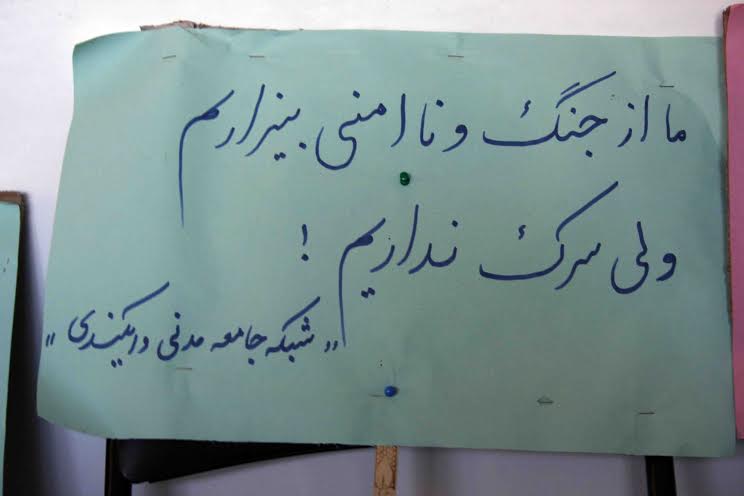 ما از جنگ و نا امنی بیزاریم
ولی سرک نداریم !
"شبکه جامعه مدنی دایکندی"